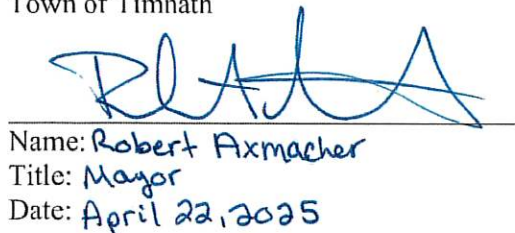 Town of Timnath
Name: Robert Axmacher
Title: Mayor
Date: April 22, 2025